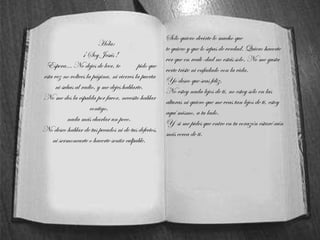 Hola:
¡ Soy Jesús !
Espera... No dejes de leer, te pido que
esta vez no voltees la página, ni cierres la puerta
ni salues al radio, y me dejes hablarte.
No me des la espalda por favor, necesito hablar
contigo,
nada más charlar un poco.
No deseo hablar de tus pecados ni de tus defectos,
ni sermonearte o hacerte sentir culpable.
Solo quiero decirte lo mucho que
te quiero y que lo sepas de verdad. Quiero hacerte
ver que en reali-dad no estás solo. No me gusta
verte triste ni enfadado con la vida.
Yo deseo que seas feliz.
No estoy nada lejos de ti, no estoy solo en las
alturas ni quiero que me veas tan lejos de ti, estoy
aquí mismo, a tu lado.
Y si me pides que entre en tu corazón estaré aún
más cerca de ti.